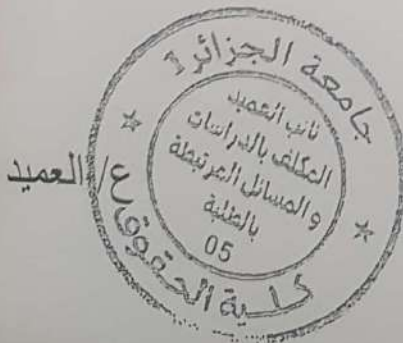 جامعة الجزائر 1
نائب العميد
المكلف بالدراسات
و المسائل المرتبطة
بالطلبة
05
كلية الحقوق
ع/ العميد